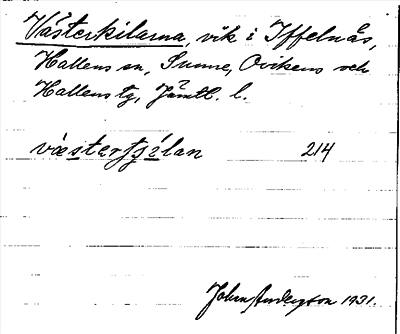 Västerkilarna, vik i Iffelnäs,
Hallens sn, Sunne, Ovikens och
Hallens tg, Jämtl. l.
væstertʃílan 214
John Anderson 1931.